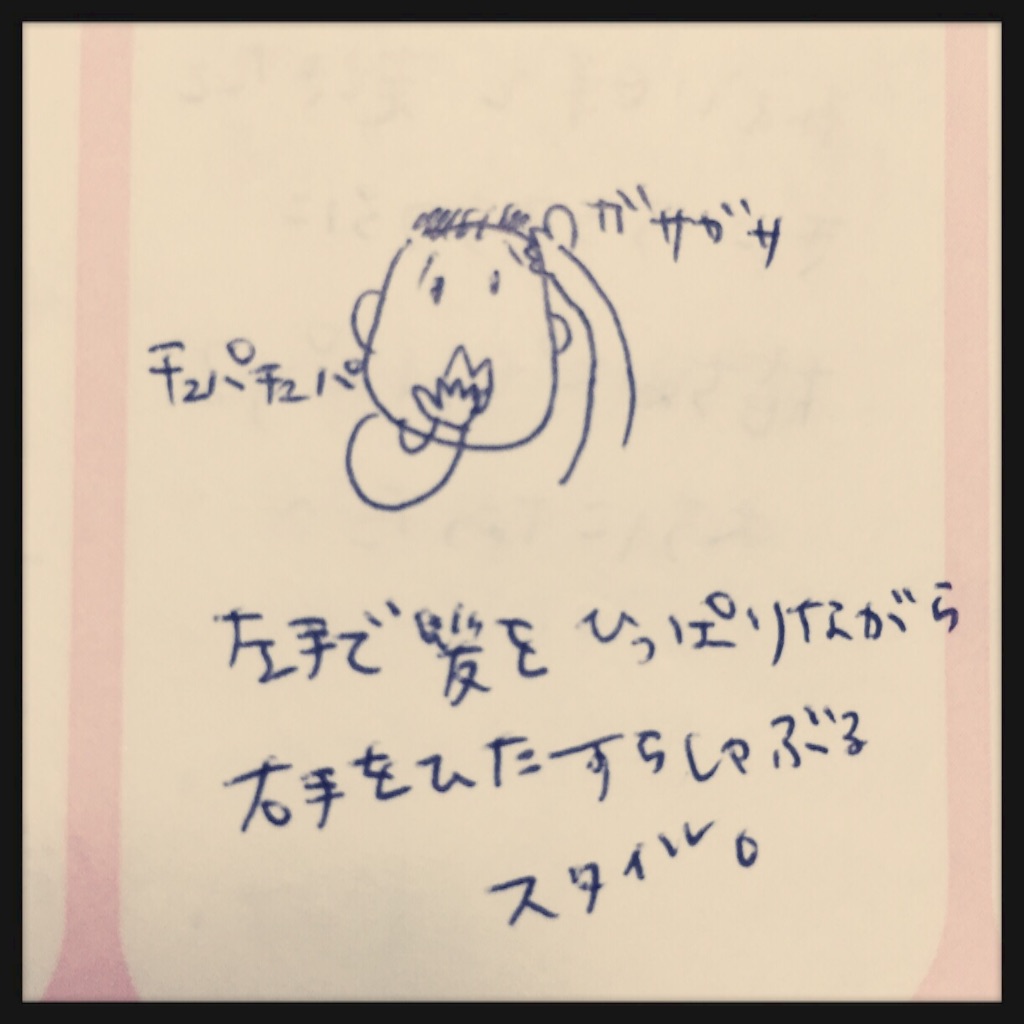 ガサガサ
チュパチュパ
左手で髪をひっぱりながら
右手をひたすらしゃぶる
スタイル。